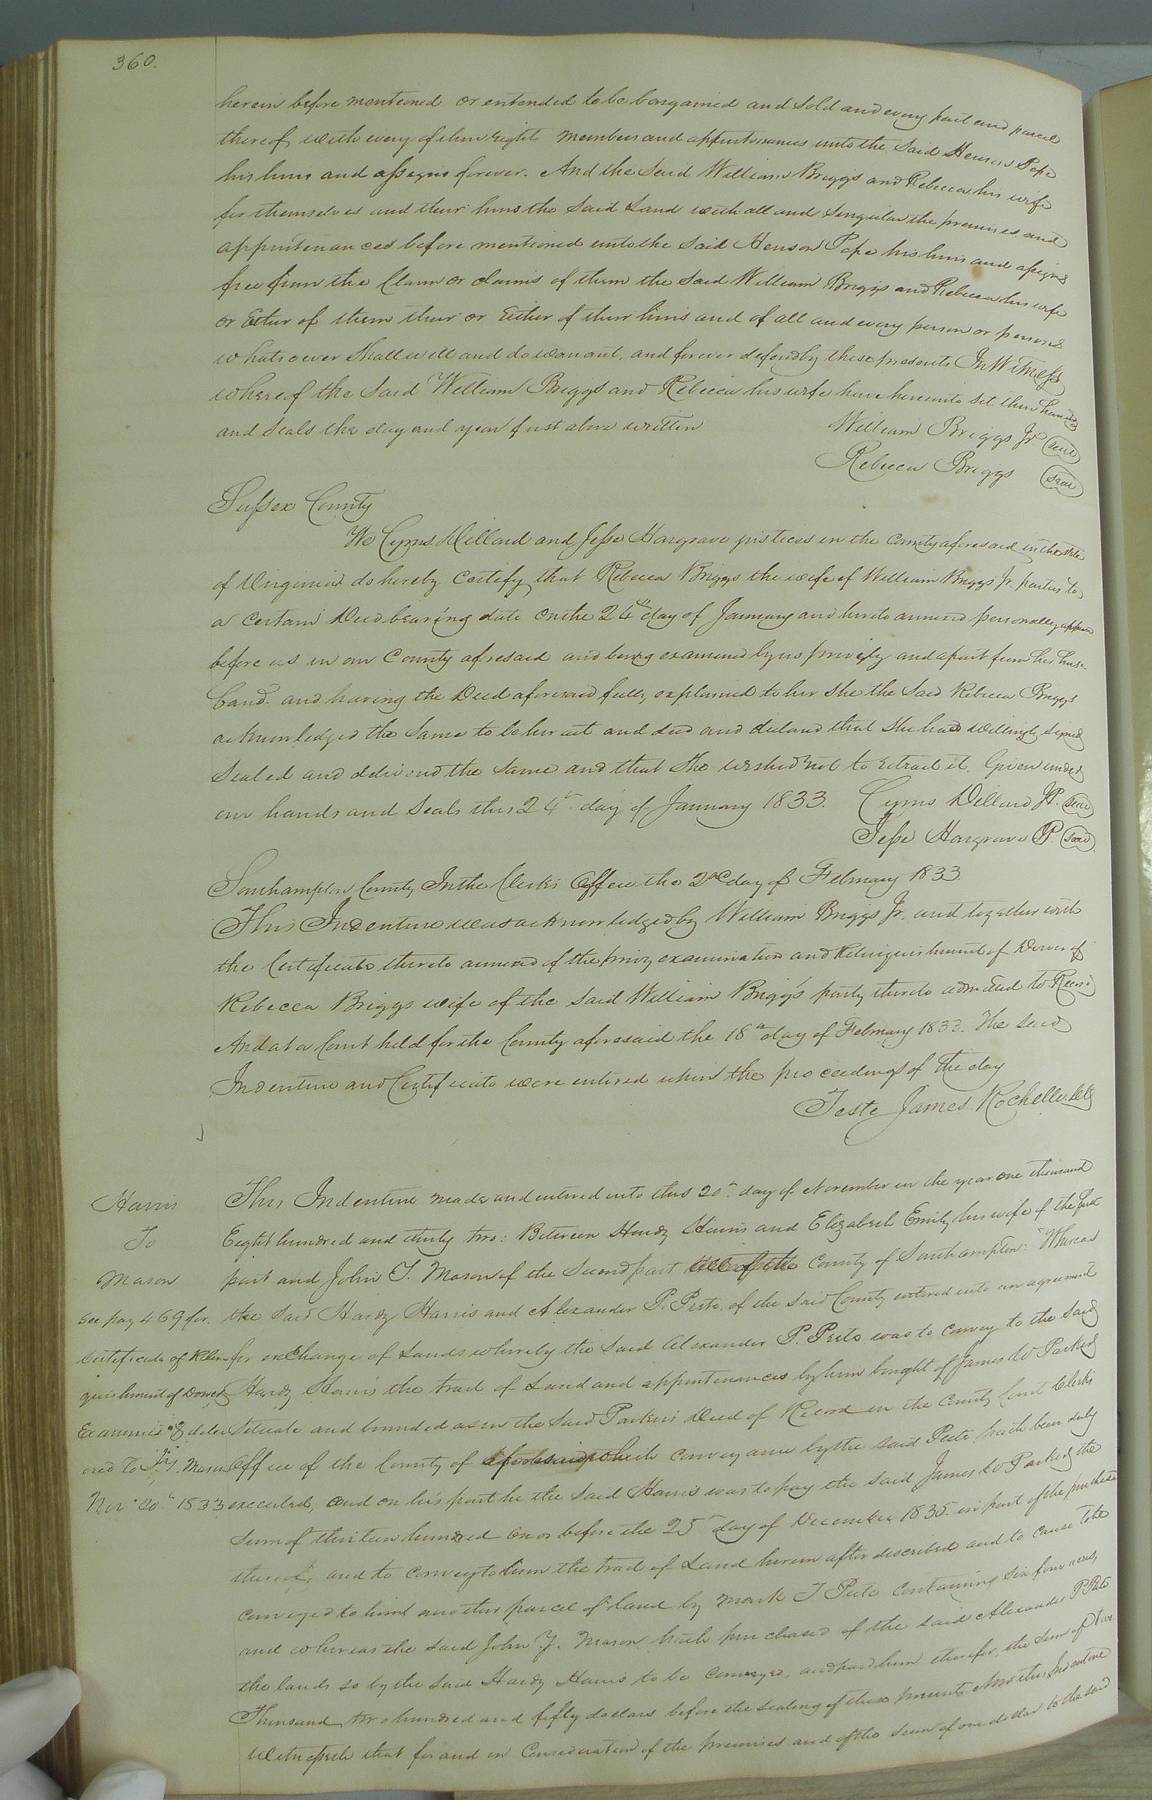 360.
herein before mentioned or entended to be bargained and sold and every part and parcel
thereof with every of their rights members and appurtenances unto the said Henson Pope
his heirs and assigns forever. And the said William Briggs and Rebecca his wife
for themselves and their heirs the said Land with all and singular the premises and
appurtenances before mentioned unto the said Henson Pope his heirs and assigns
free from the Claim or claims of them the said William Briggs and Rebecca his wife
or Either of them their or Either of their heirs and of all and every person or persons
whatsoever Shall will and do warrant, and forever defend by these presents In Witness
whereof the Said William Briggs and Rebecca his wife have hereunto set their hands
and seals the day and year first above written William Briggs Jr seal
Rebecca Briggs seal
Sussex County
We Cyrus Dillard and Jesse Hargrave justices in the County aforesaid in the state
of Virginia do hereby certify that Rebecca Briggs the wife of William Briggs Jr. parties to
a certain Deed bearing date on the 24th day of January and hereto annexed personally appeared
before us in our County aforesaid and being examined by us privily and apart from her hus-
band and having the Deed aforesaid fully explained to her She the said Rebecca Briggs
acknowledged the same to be her act and deed and declared that She had willingly signed
Sealed and delivered the same and that she wished not to retract it. Given under
our hands and seals this 24th day of January 1833. Cyrus Dillard JP. seal
Jesse Hargrave P. seal
Southampton County In the Clerks Office the 2nd day of February 1833
This Indenture was acknowledged by William Briggs Jr. and together with
the Certificate thereto annexed of the privy examination and Relinquishment of Dower of
Rebecca Briggs wife of the said William Briggs party thereto admitted to Record
And at a Court held for the County aforesaid the 18th day of February 1833. The said
Indenture and Certificate were entered upon the proceedings of the day
Teste James Rochelle Clk
Harris
To
Mason
see pag 469 for
certificate of Relin
quishment of Dower
Examined & deliv
ered to J. Y. Mason
Nov. 20th 1833
This Indenture made and entered into this 20th day of November in the year one thousand
Eight hundred and thirty two: Between Hardy Harris and Elizabeth Emily his wife of the first
part and John Y. Mason of the Second part all of the County of Southampton: Whereas
the said Hardy Harris and Alexander P. Peete of the said County entered into an agreement
for exchange of Lands whereby the said Alexander P. Peete was to convey to the said
Hardy Harris the tract of Land and appurtenances by him bought of James W Parker
Situate and bounded as in the said Parkers Deed of Record in the County Court Clerks
Office of the County of aforesaid which conveyance by the said Peete hath been duly
executed, and on his part he the said Harris was to pay the said James W Parker the
Sum of thirteen hundred on or before the 25th day of December 1835 in part of the purchase
thereof, and to convey to him the tract of Land herein after described and to cause to be
conveyed to him another parcel of land by Mark T Peete containing six four acres,
and whereas the said John Y. Mason hath purchased of the said Alexander P Peete
the lands so by the said Hardy Harris to be conveyed, and paid him therefor, the sum of two
Thousand two hundred and fifty dollars before the sealing of these presents Now this Indenture
witnesseth that for and in Consideration of the premises and of the sum of one dollar to the said